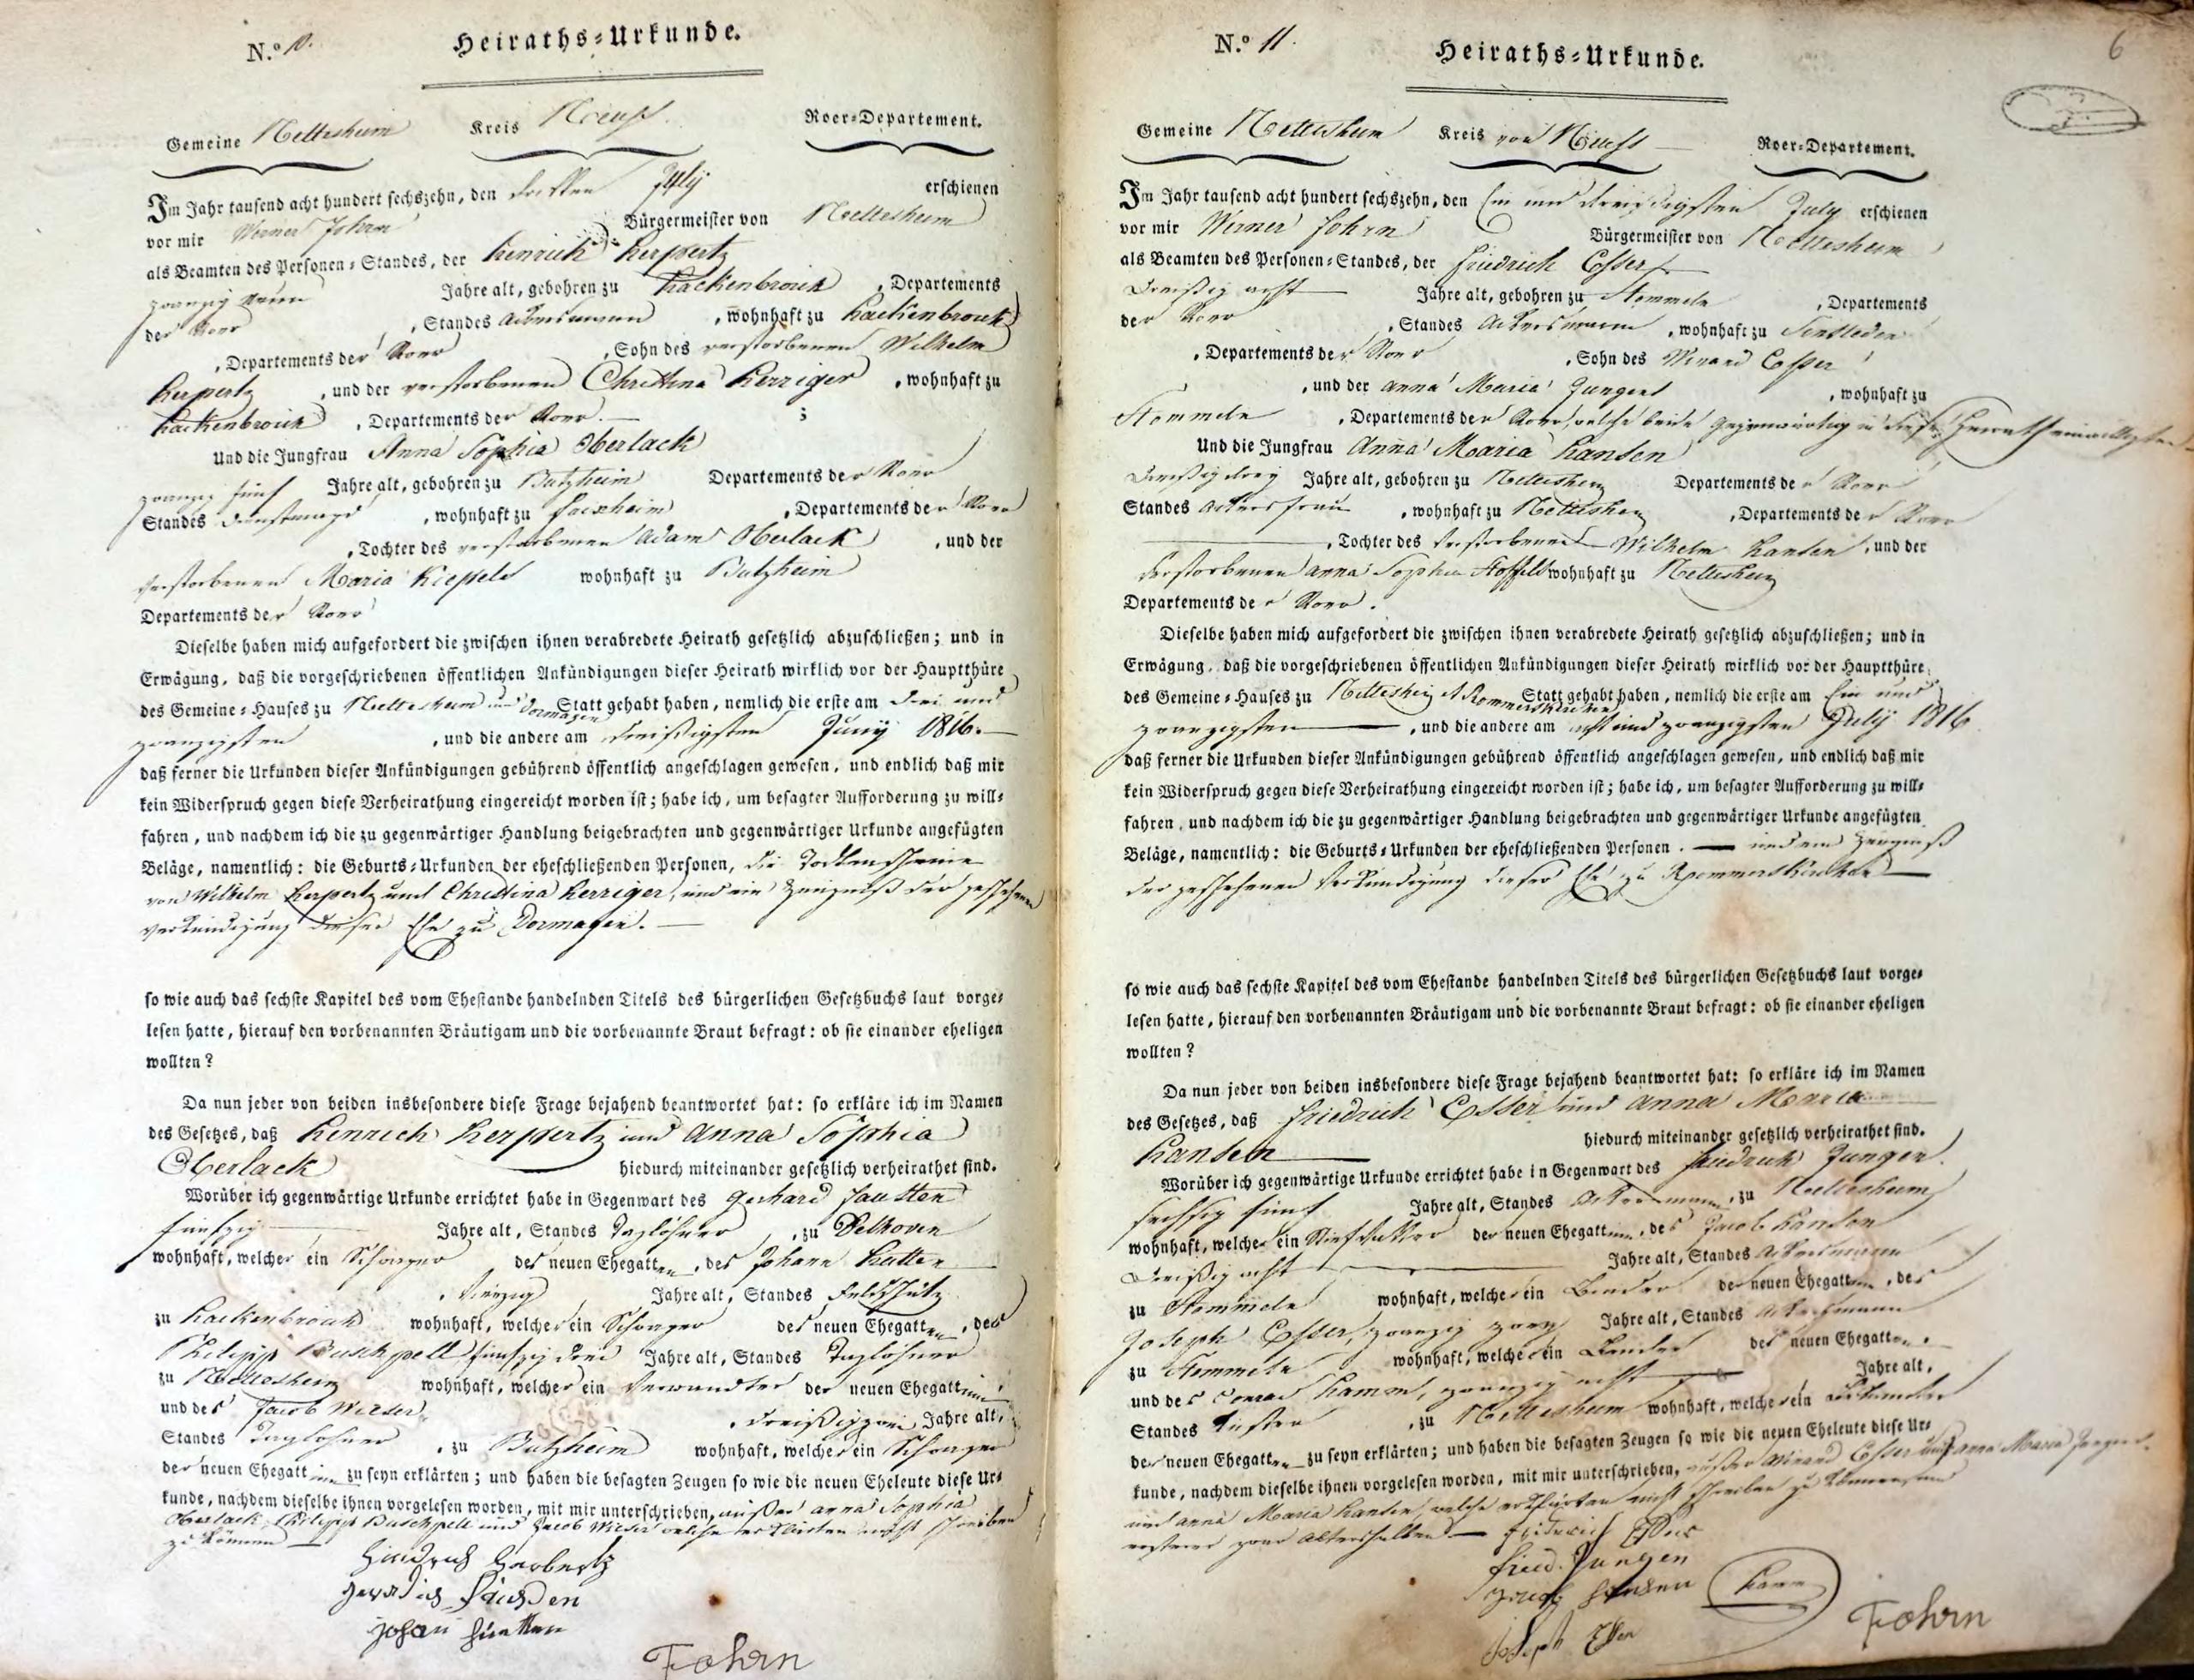 N.º 10.
Heiraths-Urkunde.
Gemeine Nettesheim Kreis Neuss Roer-Departement.
Im Jahr tausend acht hundert sechszehn, den July erschienen
vor mir Werner Fohrn Bürgermeister von Nettesheim
als Beamten des Personen-Standes, der Henrich Herpertz
zwanzig neun Jahre alt, gebohren zu Hackenbroich, Departements
der Roer, Standes Ackersmann, wohnhaft zu Hackenbroich
, Departements der Roer, Sohn des verstorbenen Wilhelm
Herpertz, und der verstorbenen Christina Herriger, wohnhaft zu
Hackenbroich, Departements der Roer. ;
Und die Jungfrau Anna Sophia Oberlack
zwanzig fünf Jahre alt, gebohren zu Butzheim Departements der Roer
Standes Dienstmagd, wohnhaft zu, Departements der Roer
, Tochter des verstorbenen Adam Oberlack, und der
verstorbenen Maria Kiepels wohnhaft zu Butzheim
Departements der Roer
Dieselbe haben mich aufgefordert die zwischen ihnen verabredete Heirath gesetzlich abzuschließen; und in
Erwägung, daß die vorgeschriebenen öffentlichen Ankündigungen dieser Heirath wirklich vor der Hauptthüre
des Gemeine-Hauses zu Nettesheim und Dormagen Statt gehabt haben, nemlich die erste am drei und
zwanzigsten, und die andere am dreißigsten Juny 1816.
daß ferner die Urkunden dieser Ankündigungen gebührend öffentlich angeschlagen gewesen, und endlich daß mir
kein Widerspruch gegen diese Verheirathung eingereicht worden ist; habe ich, um besagter Aufforderung zu will-
fahren, und nachdem ich die zu gegenwärtiger Handlung beigebrachten und gegenwärtiger Urkunde angefügten
Beläge, namentlich: die Geburts-Urkunden der eheschließenden Personen, die Todtenscheine
von Wilhelm Herpertz und Christina Herriger, und ein Zeugniß der geschehenen
Verkündigung dieser Ehe zu Dormagen.
so wie auch das sechste Kapitel des vom Ehestande handelnden Titels des bürgerlichen Gesetzbuchs laut vorge-
lesen hatte, hierauf den vorbenannten Bräutigam und die vorbenannte Braut befragt: ob sie einander eheligen
wollten?
Da nun jeder von beiden insbesondere diese Frage bejahend beantwortet hat: so erkläre ich im Namen
des Gesetzes, daß Henrich Herpertz und Anna Sophia
Oberlack hiedurch miteinander gesetzlich verheirathet sind.
Worüber ich gegenwärtige Urkunde errichtet habe in Gegenwart des Gerhard Fausten
fünfzig Jahre alt, Standes Taglöhner, zu Delhoven
wohnhaft, welcher ein Schwager des neuen Ehegatten, des Johann Hutten
, vierzig Jahre alt, Standes Feldschütz
zu Hackenbroich wohnhaft, welcher ein Schwager des neuen Ehegatten, des
Philipp Buschpell fünfzig drei Jahre alt, Standes Taglöhner
zu Nettesheim wohnhaft, welcher ein Verwandter der neuen Ehegattinn
und des Jacob Wieler, dreißig zwei Jahre alt,
Standes Taglöhner, zu Butzheim wohnhaft, welcher ein Schwager
der neuen Ehegattinn zu seyn erklärten; und haben die besagten Zeugen so wie die neuen Eheleute diese Ur-
kunde, nachdem dieselbe ihnen vorgelesen worden, mit mir unterschrieben, außer Anna Sophia
Oberlack, Philipp Buschpell und Jacob welche erklärten nicht schreiben
zu können
Fohrn
N.º 11.
6
Heiraths-Urkunde.
Gemeine Nettesheim Kreis von Neuss Roer-Departement.
Im Jahr tausend acht hundert sechszehn, den Ein und dreißigsten July erschienen
vor mir Werner Fohrn Bürgermeister von Nettesheim
als Beamten des Personen-Standes, der Friedrich Esser
Dreißig acht Jahre alt, gebohren zu Stommeln, Departements
der Roer, Standes Ackersmann, wohnhaft zu
, Departements der Roer, Sohn des Winand Esser
, und der Anna Maria Jungen, wohnhaft zu
Stommeln, Departements der Roer, welche beide gegenwärtig in diese Heirath einwilligten
Und die Jungfrau Anna Maria Hansen
Dreißig drey Jahre alt, gebohren zu Nettesheim Departements der Roer
Standes Ackersfrau, wohnhaft zu Nettesheim, Departements der Roer
, Tochter des verstorbenen Wilhelm Hansen, und der
verstorbenen Anna Sophia Stoffels wohnhaft zu Nettesheim
Departements der Roer.
Dieselbe haben mich aufgefordert die zwischen ihnen verabredete Heirath gesetzlich abzuschließen; und in
Erwägung, daß die vorgeschriebenen öffentlichen Ankündigungen dieser Heirath wirklich vor der Hauptthüre
des Gemeine-Hauses zu Nettesheim et Rommerskirchen Statt gehabt haben, nemlich die erste am Ein und
zwanzigsten, und die andere am acht und zwanzigsten July 1816
daß ferner die Urkunden dieser Ankündigungen gebührend öffentlich angeschlagen gewesen, und endlich daß mir
kein Widerspruch gegen diese Verheirathung eingereicht worden ist; habe ich, um besagter Aufforderung zu will-
fahren, und nachdem ich die zu gegenwärtiger Handlung beigebrachten und gegenwärtiger Urkunde angefügten
Beläge, namentlich: die Geburts-Urkunden der eheschließenden Personen. und ein Zeugniß
der geschehenen Verkündigung dieser Ehe zu Rommerskirchen
so wie auch das sechste Kapitel des vom Ehestande handelnden Titels des bürgerlichen Gesetzbuchs laut vorge-
lesen hatte, hierauf den vorbenannten Bräutigam und die vorbenannte Braut befragt: ob sie einander eheligen
wollten?
Da nun jeder von beiden insbesondere diese Frage bejahend beantwortet hat: so erkläre ich im Namen
des Gesetzes, daß Friedrich Esser und Anna Maria
Hansen hiedurch miteinander gesetzlich verheirathet sind.
Worüber ich gegenwärtige Urkunde errichtet habe in Gegenwart des Friedrich Jungen
sechszig fünf Jahre alt, Standes Ackersmann, zu Nettesheim
wohnhaft, welcher ein Stiefvatter der neuen Ehegattinn, des Jacob Hansen
Dreißig acht Jahre alt, Standes Ackersmann
zu Stommeln wohnhaft, welcher ein Bruder der neuen Ehegattinn, des
Joseph Esser, zwanzig zwey Jahre alt, Standes Ackersmann
zu Stommeln wohnhaft, welcher ein Bruder des neuen Ehegatten,
und des Conrad Hamm, zwanzig acht Jahre alt,
Standes Küster, zu Nettesheim wohnhaft, welcher ein Bekannter
der neuen Ehegatten zu seyn erklärten; und haben die besagten Zeugen so wie die neuen Eheleute diese Ur-
kunde, nachdem dieselbe ihnen vorgelesen worden, mit mir unterschrieben, außer Winand Esser und Anna Maria Jungen
und Anna Maria Hansen, welche erklärten nicht schreiben zu können,
Fried. Jungen
Joseph Esser
Hamm
Fohrn